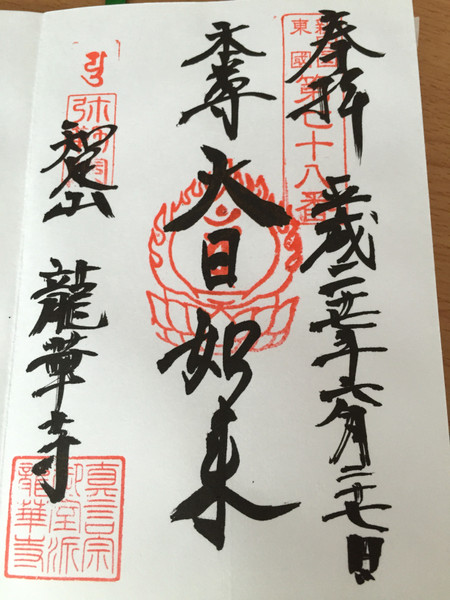 奉拜
東國
第七十八番
平成二十七年六月二十七日
本尊
大日如来
知足山
龍華寺
真言宗
御室派
龍華寺